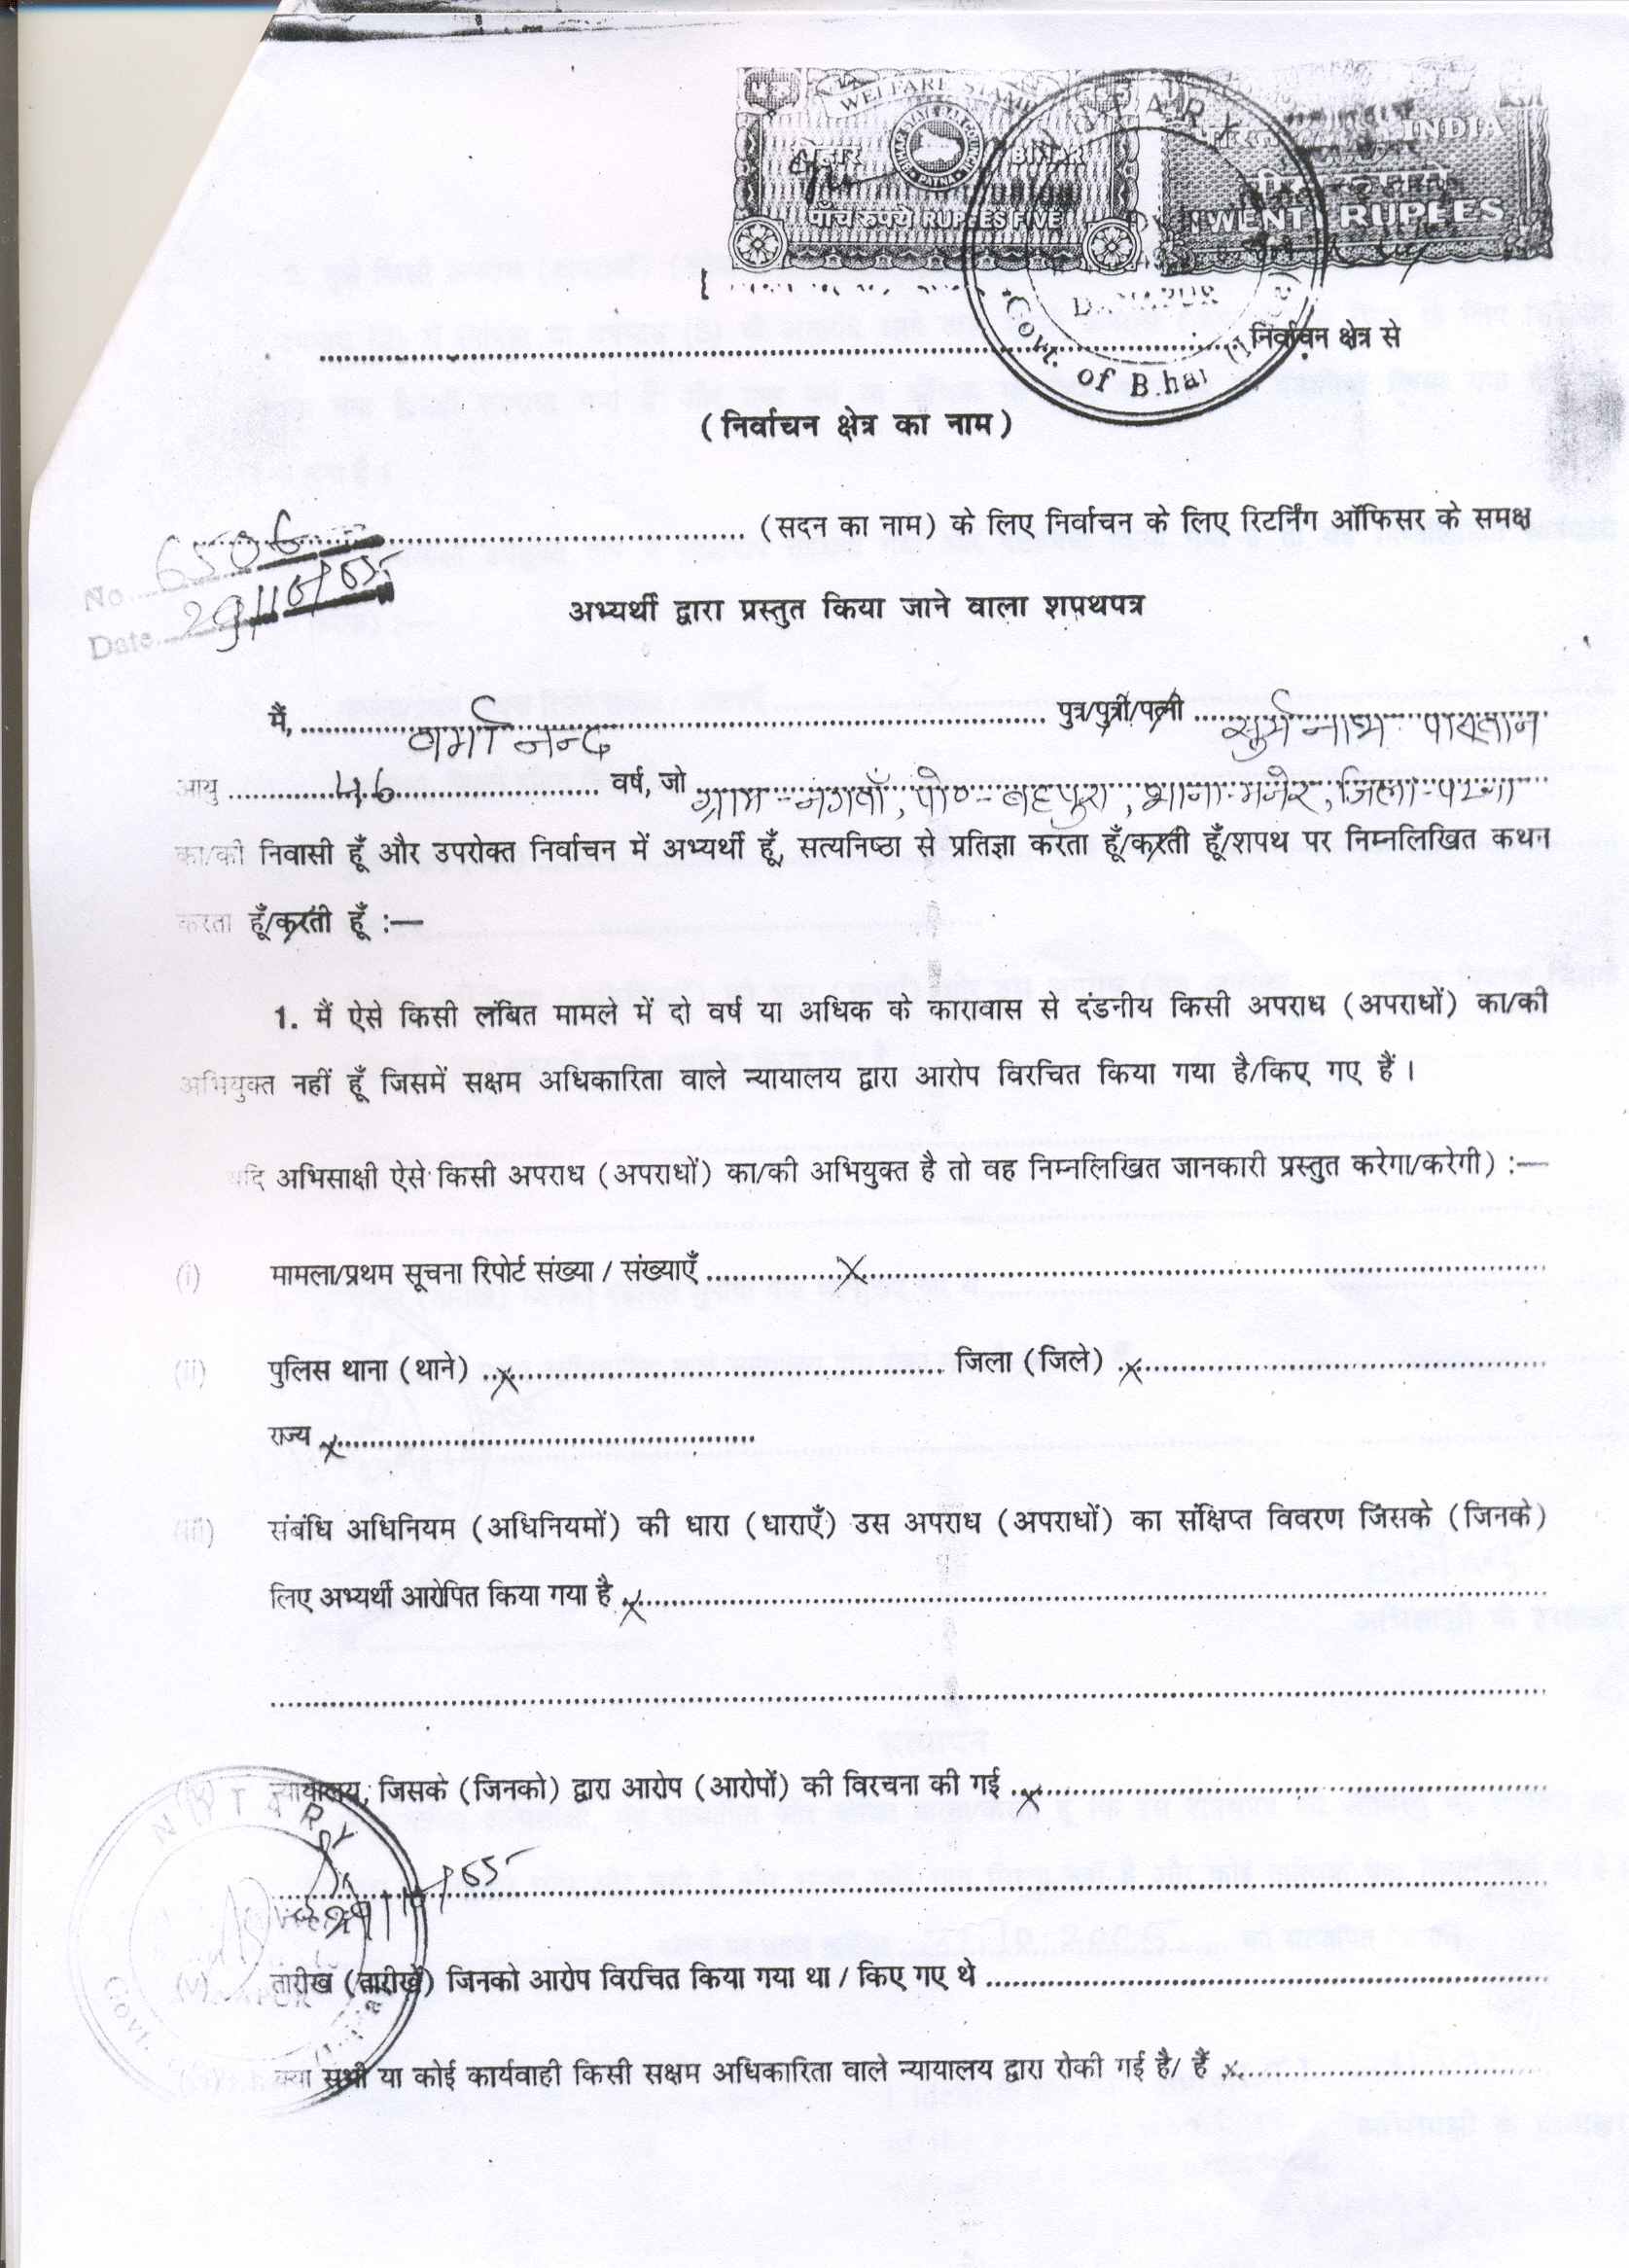 WELFARE STAMP
BIHAR STATE BAR COUNCIL PATNA
बिहार BIHAR
पाँच रुपये RUPEES FIVE
INDIA
TWENTY RUPEES
NOTARY
DANAPUR
Govt. of Bihar
........ निर्वाचन क्षेत्र से
(निर्वाचन क्षेत्र का नाम)
........ (सदन का नाम) के लिए निर्वाचन के लिए रिटर्निंग ऑफिसर के समक्ष
No. 6506
Date 29/10/05
अभ्यर्थी द्वारा प्रस्तुत किया जाने वाला शपथपत्र
मैं, वर्मा नन्द पुत्र/पुत्री/पत्नी सुर्य नाथ पासवान
आयु 46 वर्ष, जो ग्राम-नगवाँ, पो०- बहपुरा, थाना-मनेर, जिला-पटना
का/की निवासी हूँ और उपरोक्त निर्वाचन में अभ्यर्थी हूँ, सत्यनिष्ठा से प्रतिज्ञा करता हूँ/करती हूँ/शपथ पर निम्नलिखित कथन
करता हूँ/करती हूँ :—
1. मैं ऐसे किसी लंबित मामले में दो वर्ष या अधिक के कारावास से दंडनीय किसी अपराध (अपराधों) का/की
अभियुक्त नहीं हूँ जिसमें सक्षम अधिकारिता वाले न्यायालय द्वारा आरोप विरचित किया गया है/किए गए हैं ।
यदि अभिसाक्षी ऐसे किसी अपराध (अपराधों) का/की अभियुक्त है तो वह निम्नलिखित जानकारी प्रस्तुत करेगा/करेगी) :—
(i) मामला/प्रथम सूचना रिपोर्ट संख्या / संख्याएँ ........ X
(ii) पुलिस थाना (थाने) X ........ जिला (जिले) X ........
राज्य X ........
(iii) संबंधि अधिनियम (अधिनियमों) की धारा (धाराएँ) उस अपराध (अपराधों) का संक्षिप्त विवरण जिसके (जिनके)
लिए अभ्यर्थी आरोपित किया गया है X ........
(iv) न्यायालय, जिसके (जिनको) द्वारा आरोप (आरोपों) की विरचना की गई X ........
NOTARY
29/10/05
(v) तारीख (तारीखें) जिनको आरोप विरचित किया गया था / किए गए थे ........
Govt.
क्या सभी या कोई कार्यवाही किसी सक्षम अधिकारिता वाले न्यायालय द्वारा रोकी गई है/ हैं X ........